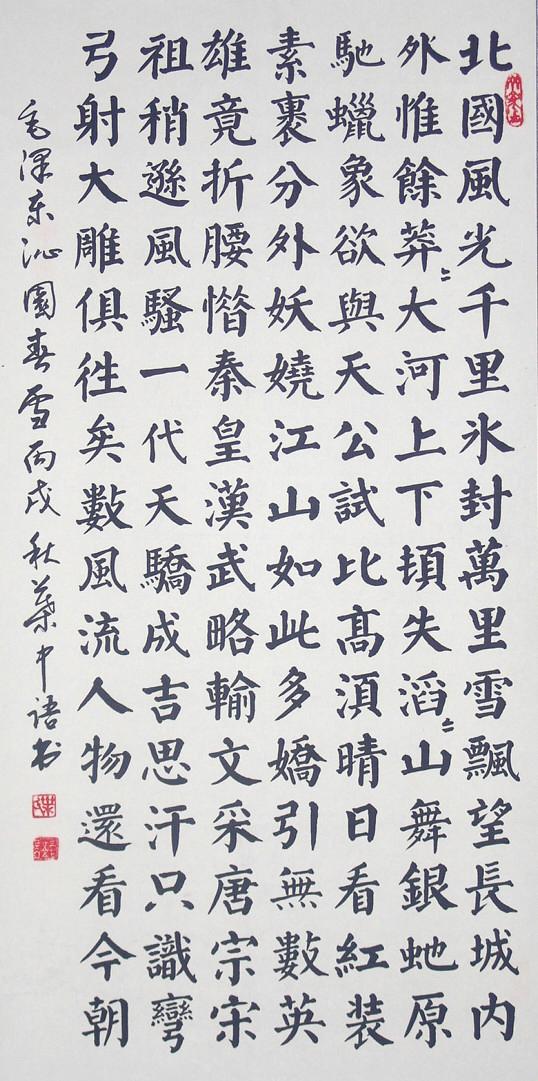 北國風光千里氷封萬里雪飄望長城内
外惟餘莽〻大河上下頓失滔〻山舞銀虵原
馳蠟象欲與天公試比髙湏晴日看紅装
素裹分外妖嬈江山如此多嬌引無數英
雄竟折腰惜秦皇漢武略輸文采唐宗宋
祖稍遜風騷一代天驕成吉思汗只識彎
弓射大雕俱徃矣數風流人物還看今朝
毛澤东沁園春雪丙戌秋葉中語书